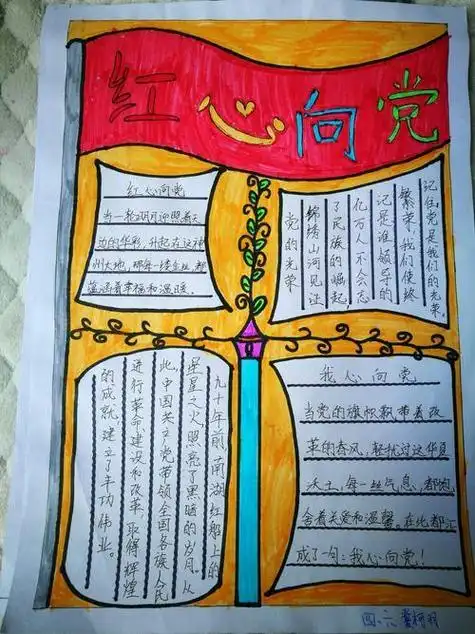 红心向党
红心向党
当一轮明月迎照着天
边的华彩，升起在这神
州大地，那每一缕
蕴涵着幸福和温暖。
记住党是我们的光荣，
繁荣，我们使终
记是谁领导的
亿万人不会忘
了民族的崛起，
锦绣山河见证
党的光荣
九十年前，南湖红船上的
星星之火，照亮了黑暗的岁月。从
此，中国共立党带领全国各族人民
进行革命、建设和改革，取得辉煌
的成就，建立了丰功伟业。
我心向党
当党的旗帜飘带着改
革的春风，轻扰过这华夏
沃土，每一丝气息，都饱
含着关爱和温馨。在此都汇
成了一句：我心向党！
四、六